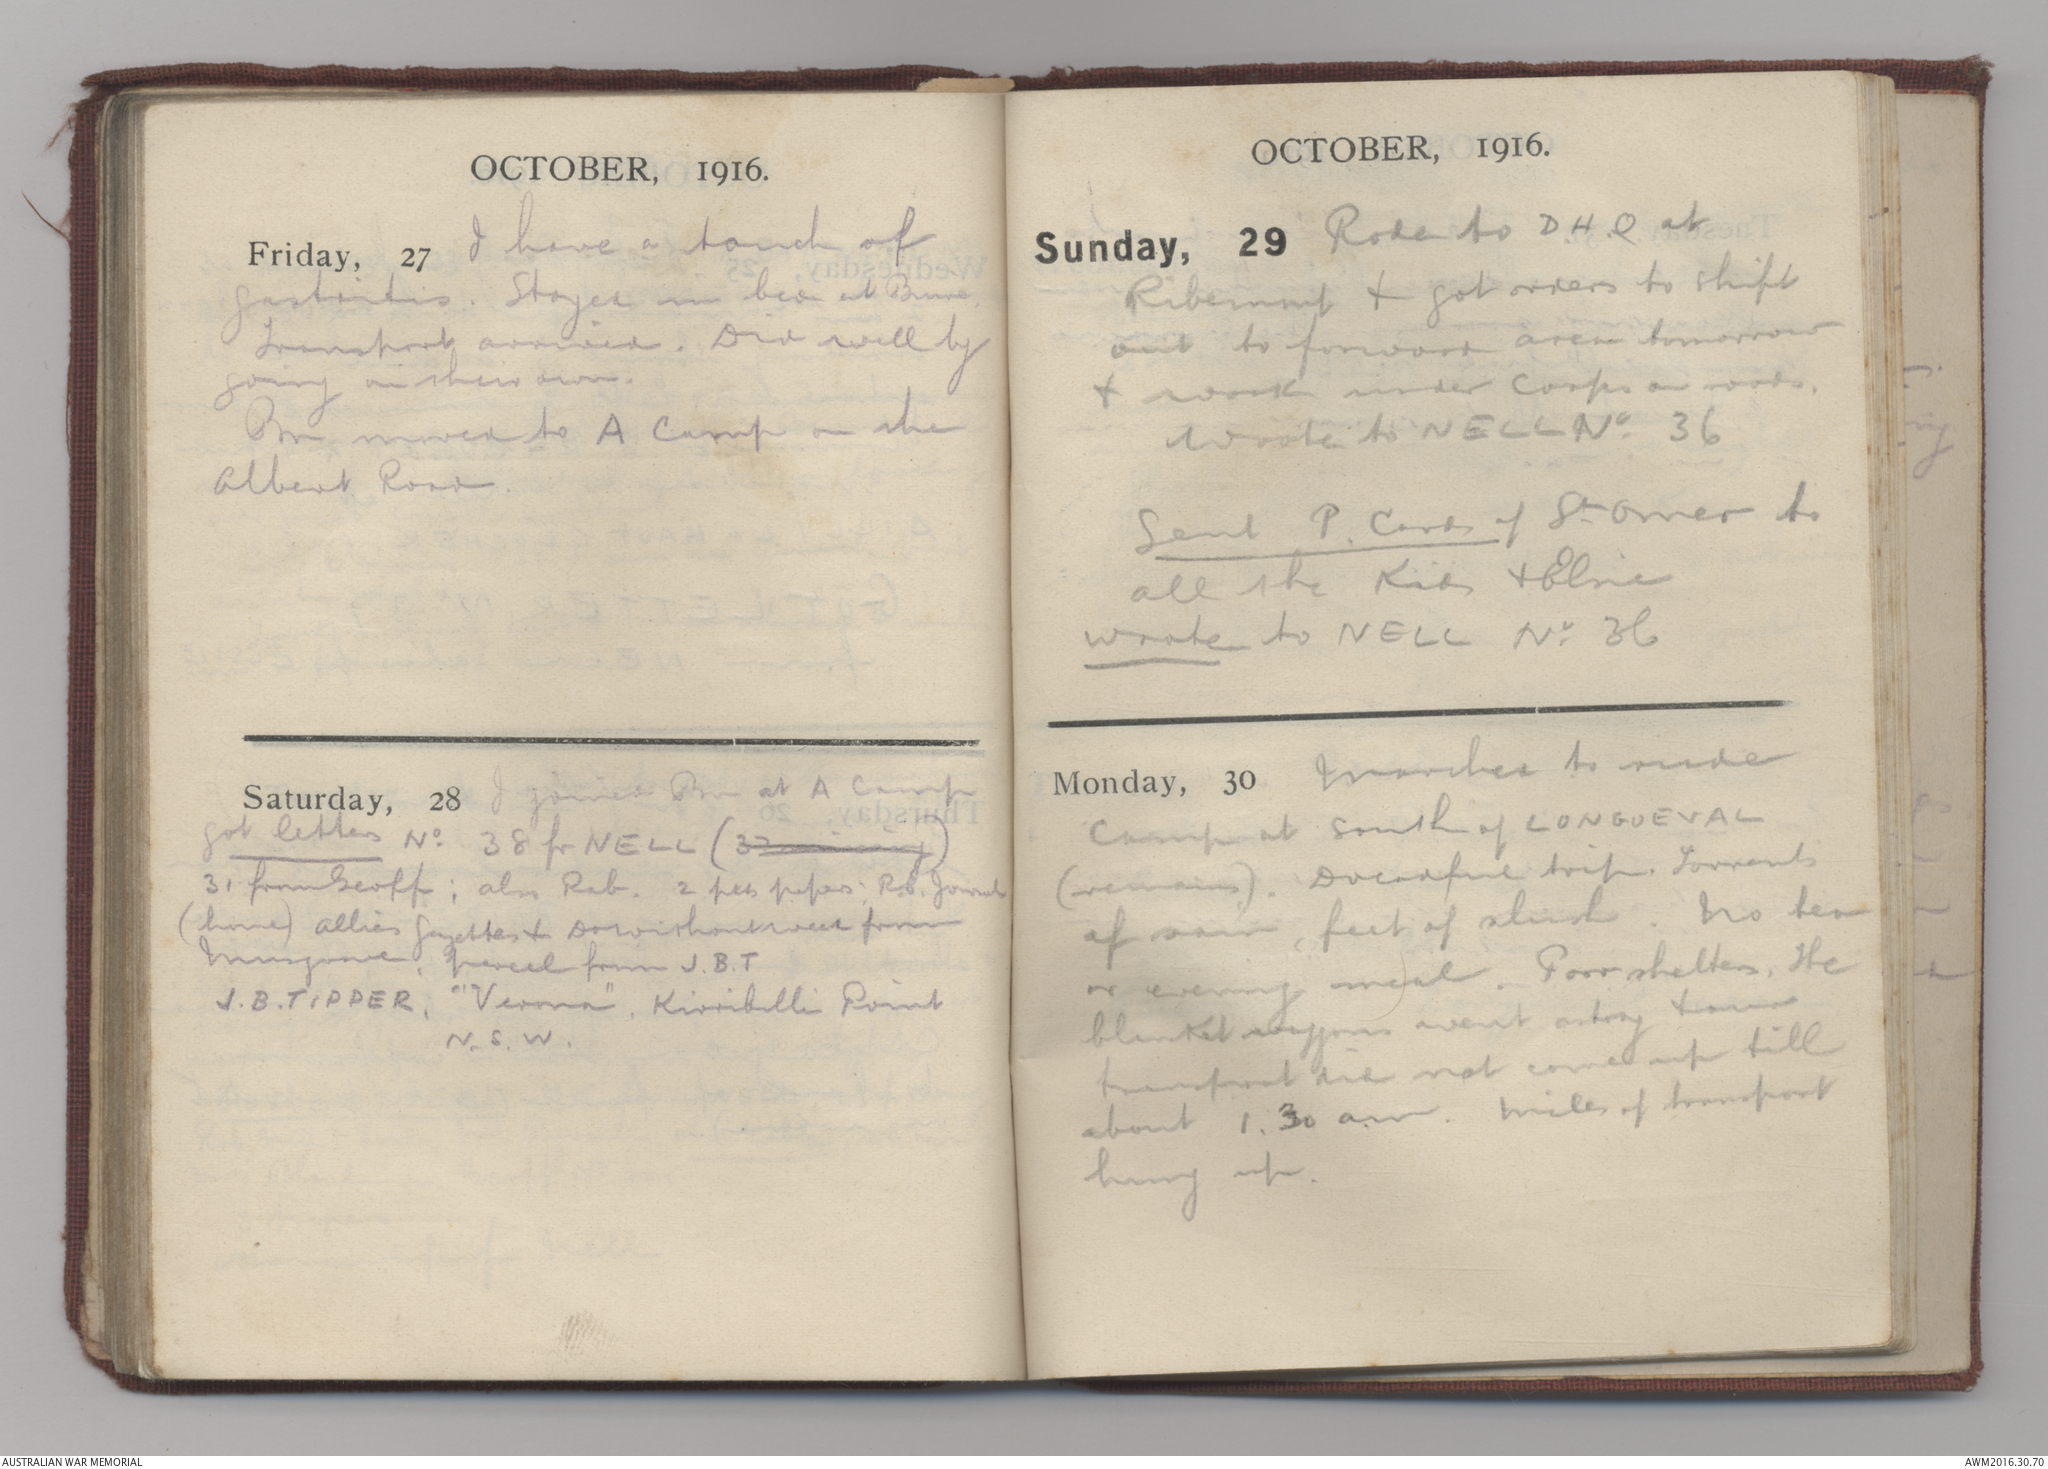 OCTOBER, 1916.
Friday, 27 I have a touch of
gastritis. Stayed in bed at Buire.
Transport arrived. Did well by
going on their own.
Bn moved to A Camp on the
Albert Road.
Saturday, 28 I joined Bn at A Camp
got letters No. 38 fr NELL (37 missing)
31 from Geoff; also Rab. 2 pks papers; R.S. Journals
(home) Allies Gazettes & from
Musgrove. parcel from J.B.T
J.B. TIPPER, "Verona", Kirribilli Point
N.S.W.
OCTOBER, 1916.
Sunday, 29 Rode to D H.Q at
Ribemont & got orders to shift
out to forward area tomorrow
& work under Corps on roads.
Wrote to NELL No. 36
Sent P. Cards of St Omer to
all the Kids & Elsie
wrote to NELL No. 36
Monday, 30 Marched to rude
Camp at South of LONGUEVAL
(remains). Dreadful trip. Torrents
of rain, feet of slush. No tea
or evening meal. Poor shelters. The
blanket waggons went astray & our
transport did not come up till
about 1.30 a.m. Miles of transport
hung up.
AUSTRALIAN WAR MEMORIAL
AWM2016.30.70